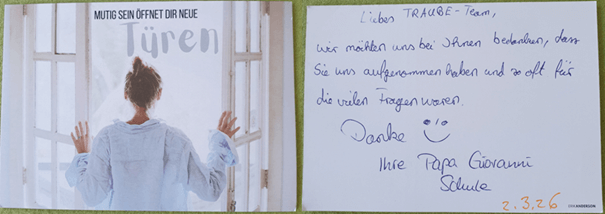 MUTIG SEIN ÖFFNET DIR NEUE
Türen
Liebes TRAUBE-Team,
wir möchten uns bei Ihnen bedanken, dass
Sie uns aufgenommen haben und so oft für
die vielen Fragen waren.
Danke
Ihre Papa Giovanni
Schule
2.3.26